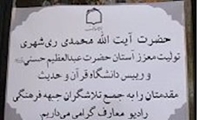 حضرت آیت الله محمدی ری‌شهری
تولیت معزز آستان حضرت عبدالعظیم حسنی
و رییس دانشگاه قرآن و حدیث
مقدمتان را به جمع تلاشگران جبهه فرهنگی
رادیو معارف گرامی می‌داریم.